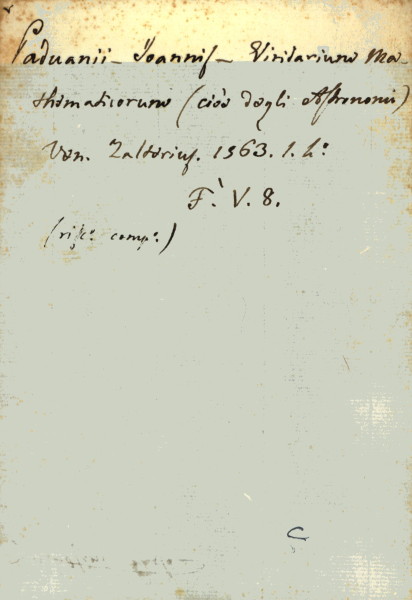 Paduanii - Joannis - Viridarium Ma-
thematicorum (cioè degli Astronomi)
Ven. Zalterius. 1563. 1. 4:o
F. V. 8.
(risc:o comp:o)
C